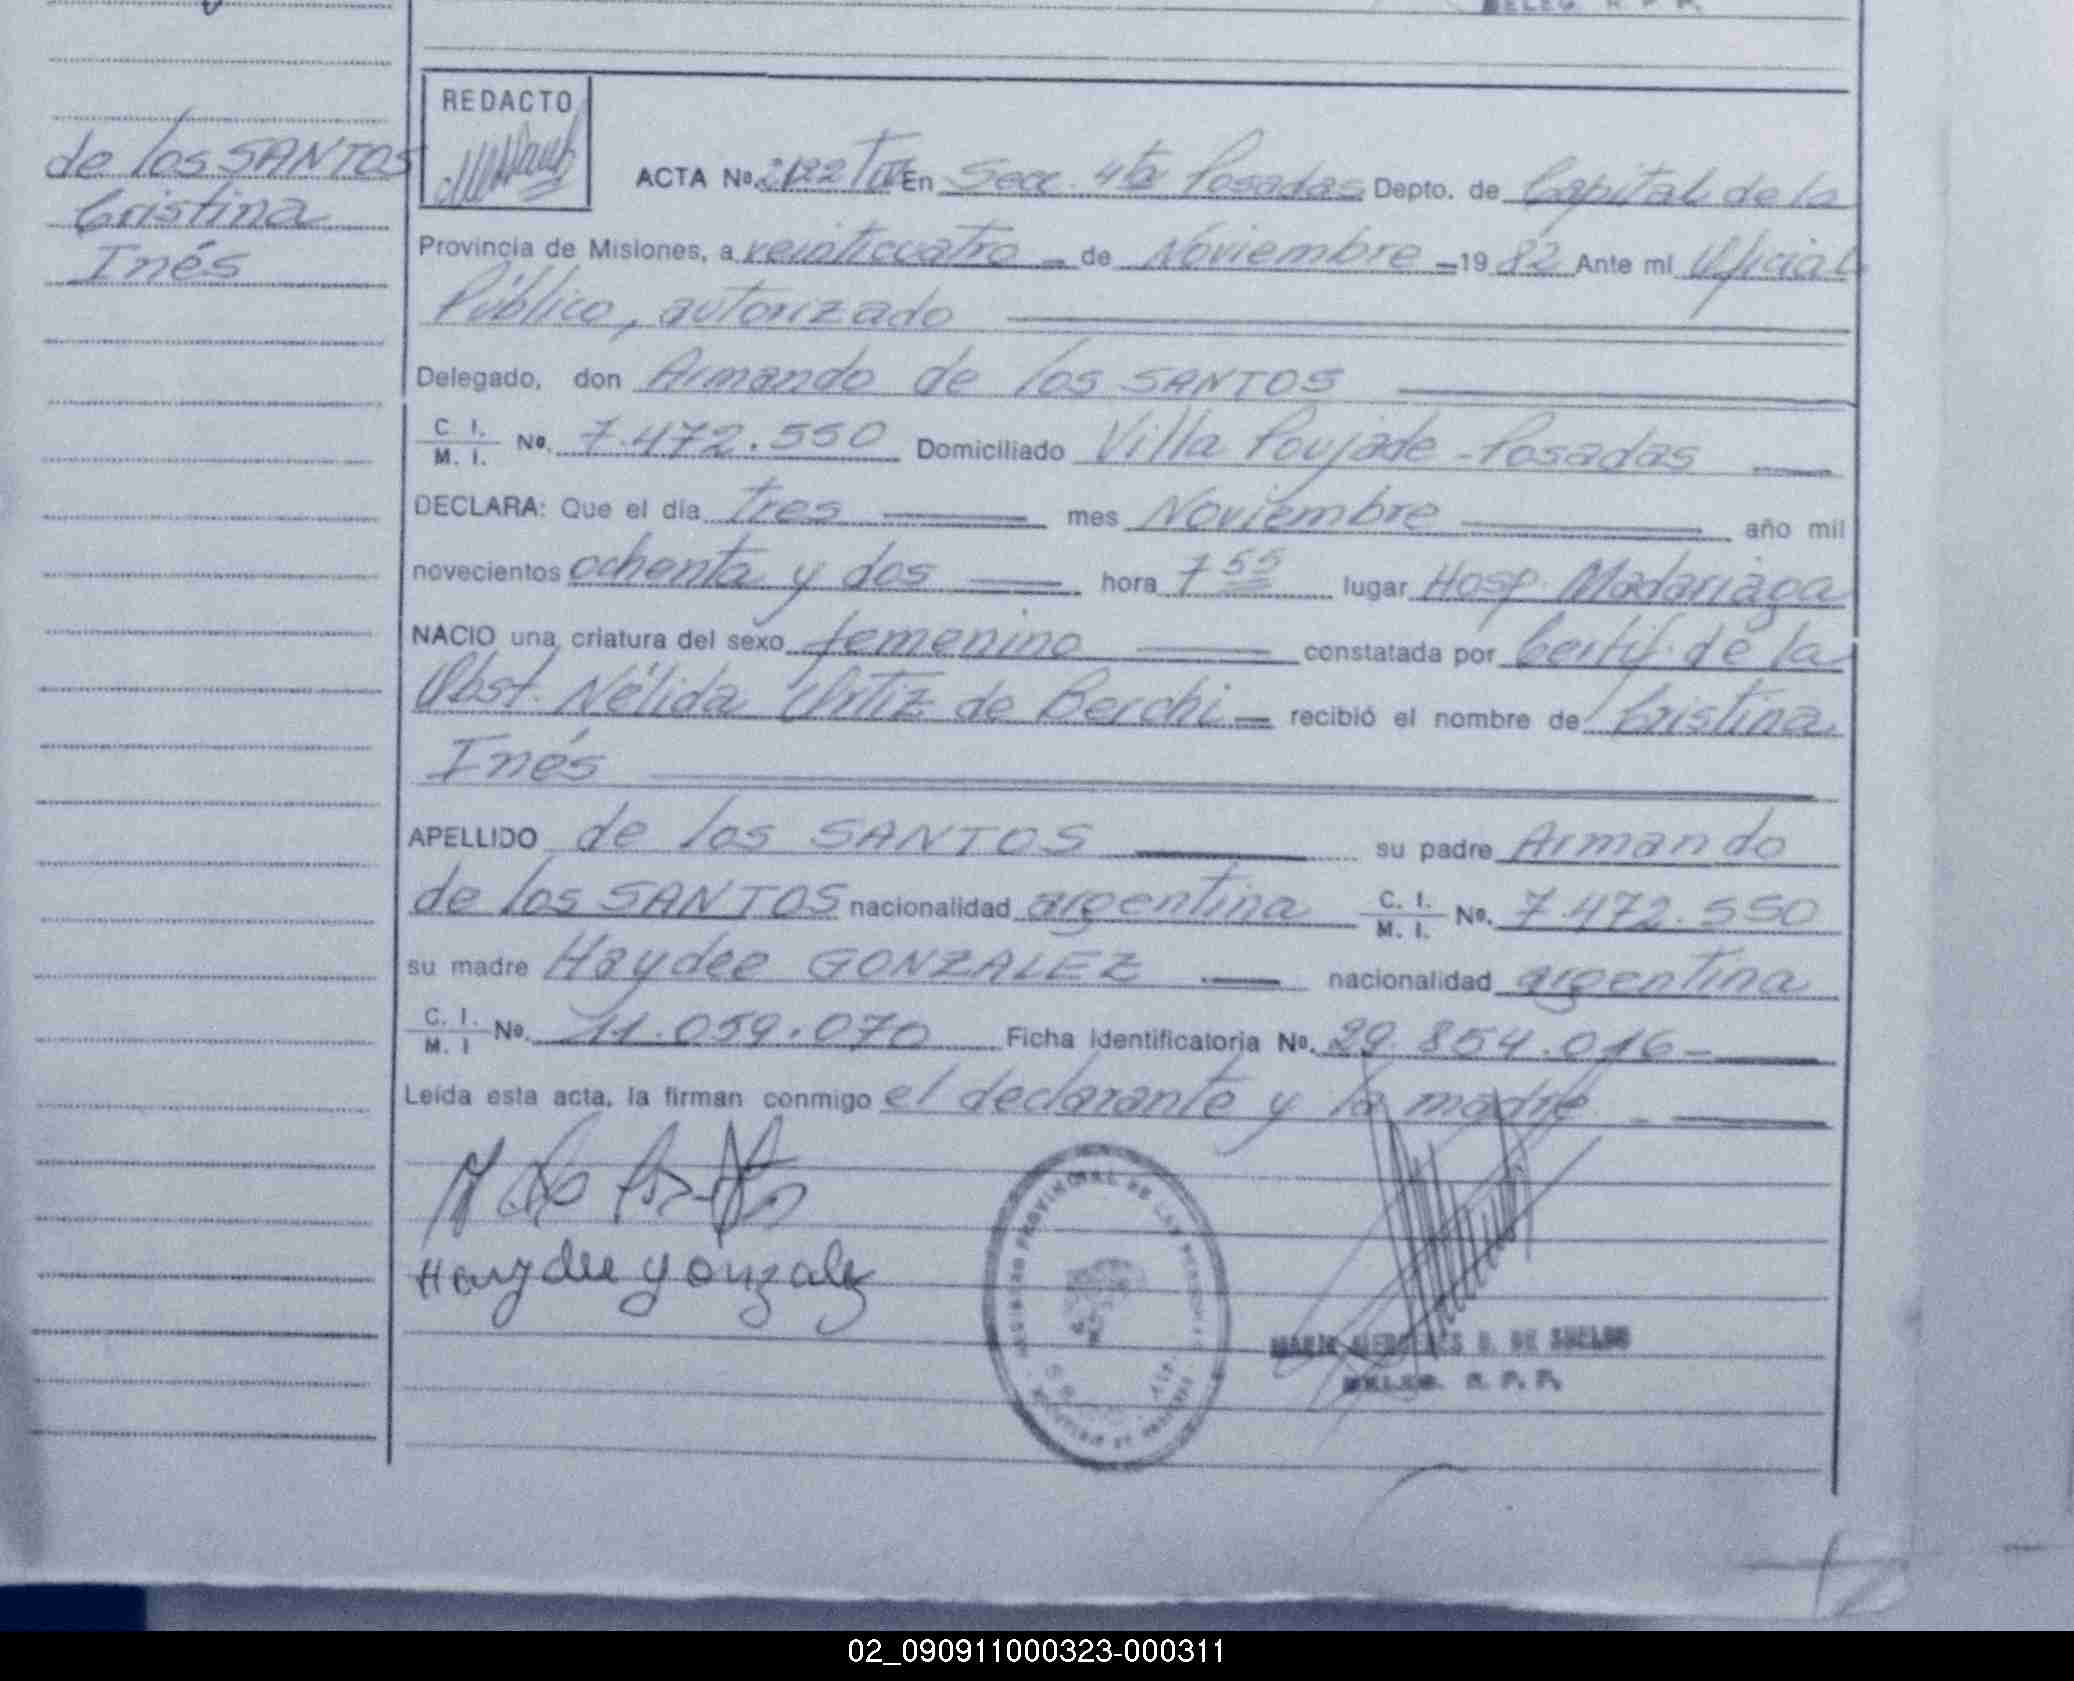 DELEG. R. P. P.
de los SANTOS
Cristina
Inés
REDACTO
ACTA Nº 2122 En Secc. 4ta Posadas Depto. de Capital de la
Provincia de Misiones, a veinticuatro - de Noviembre - 19 82 Ante mi Oficial
Público, autorizado
Delegado, don Armando de los SANTOS
C. I.
M. I. Nº. 7.472.550 Domiciliado Villa Poujade - Posadas
DECLARA: Que el día tres mes Noviembre año mil
novecientos ochenta y dos hora 7 55 lugar Hosp. Madariaga
NACIO una criatura del sexo femenino constatada por Certif. de la
Obst. Nélida Ortiz de Berchi - recibió el nombre de Cristina
Inés
APELLIDO de los SANTOS su padre Armando
de los SANTOS nacionalidad argentina C. I. M. I. Nº. 7.472.550
su madre Haydee GONZALEZ nacionalidad argentina
C. I. M. I Nº. 11.059.070 Ficha identificatoria Nº. 29.854.016 -
Leída esta acta, la firman conmigo el declarante y la madre
Haydee gonzalez
REGISTRO PROVINCIAL DE LAS PERSONAS
MARIA MERCEDES B. DE
DELEG. R. P. P.
02_090911000323-000311